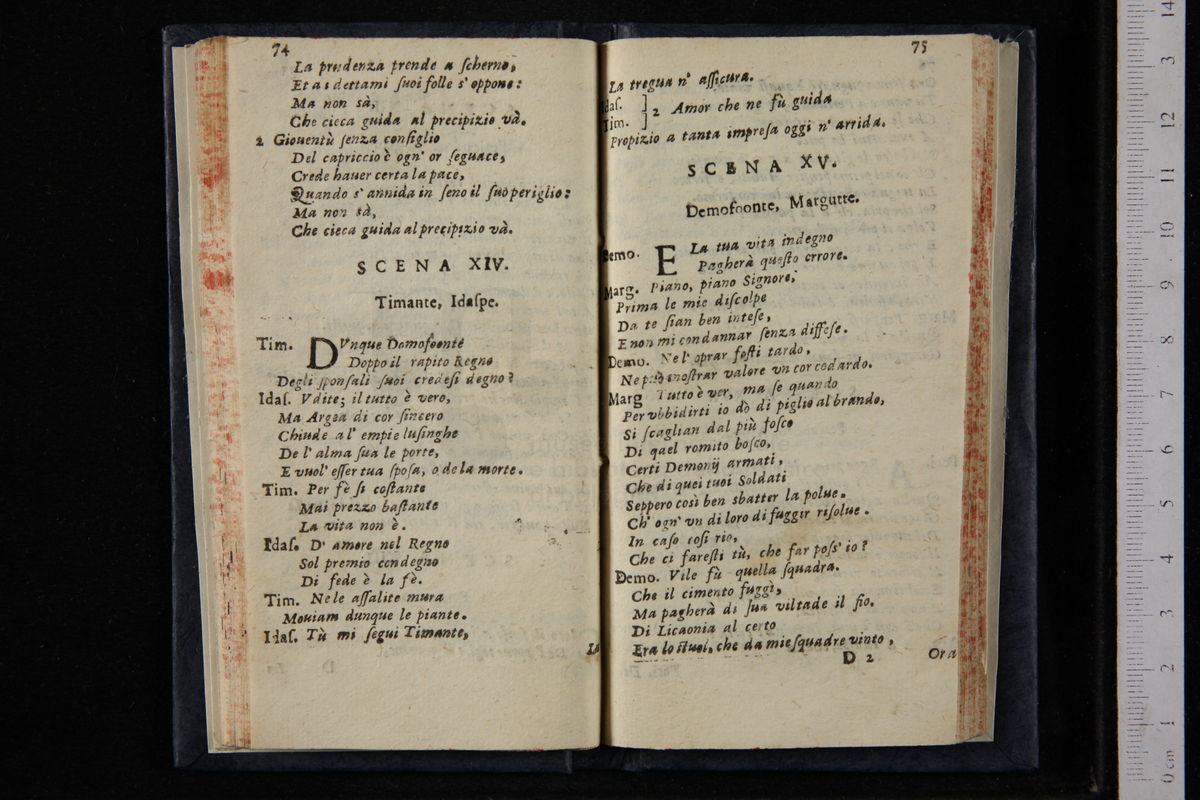 74
La prudenza prende a ſcherno,
Et a i dettami ſuoi folle s' oppone:
Ma non sà,
Che cieca guida al precipizio và.
2 Gioventù ſenza conſiglio
Del capriccio è ogn' or ſeguace,
Crede hauer certa la pace,
Quando s' annida in ſeno il ſuo periglio:
Ma non sà,
Che cieca guida al precipizio và.
SCENA XIV.
Timante, Idaſpe.
Tim. DVnque Domofoonte
Doppo il rapito Regno
Degli ſponſali ſuoi credeſi degno?
Idaſ. Vdite; il tutto è vero,
Ma Argea di cor ſincero
Chiude a l' empie luſinghe
De l' alma ſua le porte,
E vuol' eſſer tua ſpoſa, o de la morte.
Tim. Per fè ſi coſtante
Mai prezzo baſtante
La vita non è.
Idaſ. D' amore nel Regno
Sol premio condegno
Di fede è la fè.
Tim. Ne le aſſalite mura
Mouiam dunque le piante.
Idaſ. Tù mi ſegui Timante,
La
75
La tregua n' aſſicura.
Idaſ. ] 2 Amor che ne fù guida
Tim. ]
Propizio a tanta impreſa oggi n' arrida.
SCENA XV.
Demofoonte, Margutte.
Demo. E La tua vita indegno
Pagherà queſto errore.
Marg. Piano, piano Signore,
Prima le mie diſcolpe
Da te ſian ben inteſe,
E non mi condannar ſenza diffeſe.
Demo. Ne l' oprar foſti tardo,
Ne può moſtrar valore vn cor codardo.
Marg Tutto è ver, ma ſe quando
Per vbbidirti io dò di piglio al brando,
Si ſcaglian dal più foſco
Di qael romito boſco,
Certi Demonij armati,
Che di quei tuoi Soldati
Seppero così ben sbatter la polue.
Ch' ogn' vn di loro di fuggir riſolue.
In caſo coſi rio,
Che ci fareſti tù, che far poſs' io?
Demo. Vile fù quella ſquadra.
Che il cimento fuggì,
Ma pagherà di ſua viltade il fio.
Di Licaonia al certo
Era lo ſtuol, che da mie ſquadre vinto,
D 2 Ora